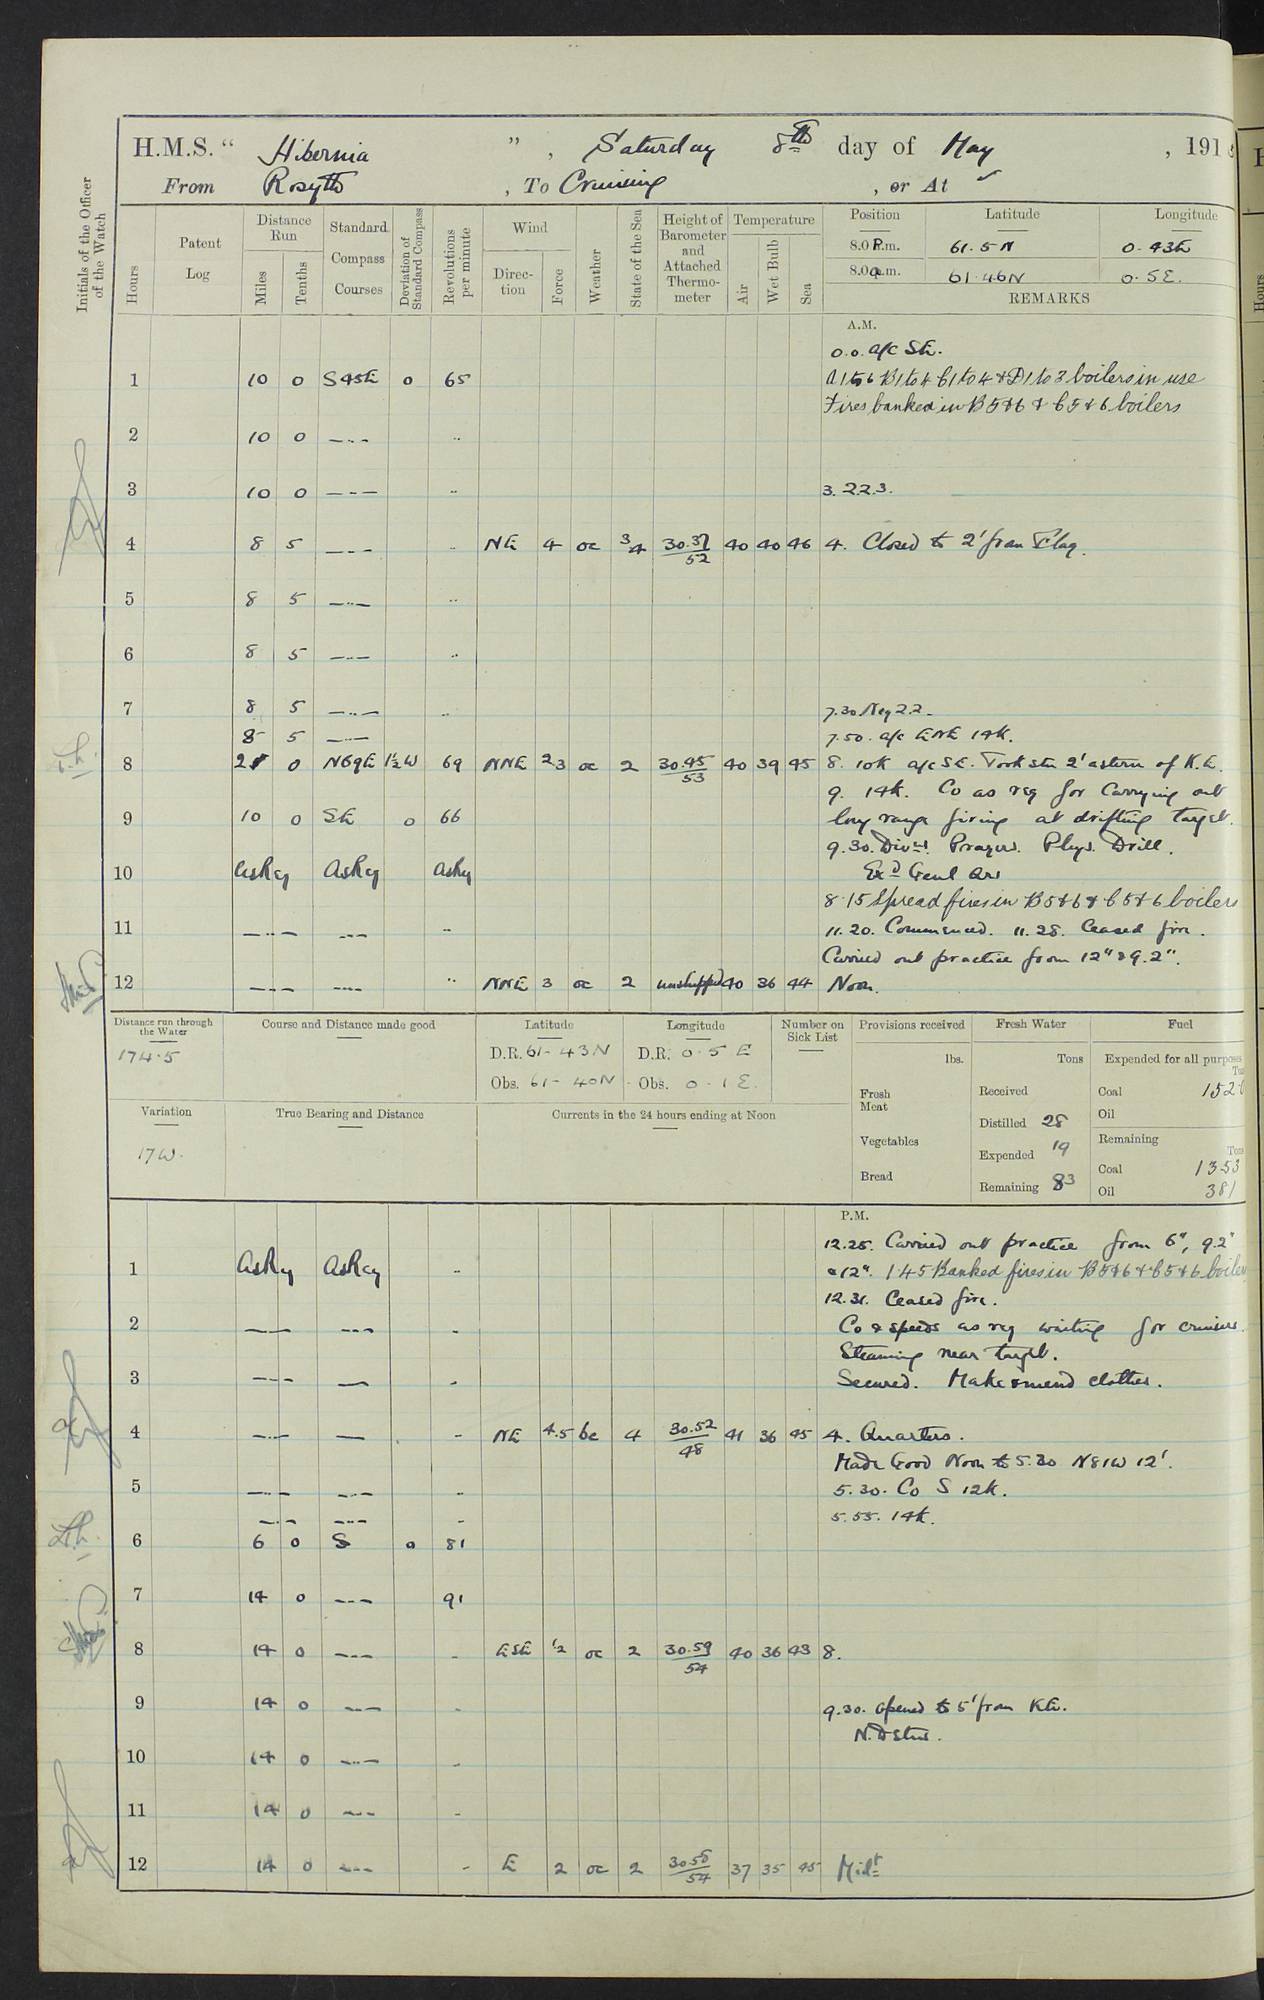 H.M.S. “ Hibernia ” , Saturday 8th day of May , 191
From Rosyth , To Cruising , or At
Initials of the Officer of the Watch
Hours
Patent Log
Distance Run
Miles
Tenths
Standard Compass Courses
Deviation of Standard Compass
Revolutions per minute
Wind
Direction
Force
Weather
State of the Sea
Height of Barometer and Attached Thermometer
Temperature
Air
Wet Bulb
Sea
Position Latitude Longitude
8.0 P.m. 61.5 N 0.43E
8.0 a.m. 61.46N 0.5E.
REMARKS
A.M.
0.0. a/c SE.
1 10 0 S45E 0 65 A1 to 6 B1 to 4 C1 to 4 & D1 to 3 boilers in use
Fires banked in B5&6 & C5&6 boilers
2 10 0 —..— ..
3 10 0 — – — .. 3. 2.2.3.
4 8 5 — – — .. NE 4 oc 3/4 30.37/52 40 40 46 4. Closed to 2' from Flag.
5 8 5 —..— ..
6 8 5 —..— ..
7 8 5 —..— .. 7.30. Neg 2.2.
8 5 —..— 7.50. a/c ENE 14K.
8 2 0 N69E 1½W 69 NNE 2.3 oc 2 30.45/53 40 39 45 8. 10K a/c SE. Took stn 2' astern of K.E.
9. 14K. Co as req for Carrying out
9 10 0 SE 0 66 long range firing at drifting target.
9.30. Divns. Prayers. Phys. Drill.
10 as Req as Req as Req Exd Genl Qrs
8.15 Spread fires in B5&6 & C5&6 boilers
11 —..— — – — .. 11.20. Commenced. 11.28. Ceased fire.
Carried out practice from 12" & 9.2".
12 —..— — – — .. NNE 3 oc 2 unshipped 40 36 44 Noon.
Distance run through the Water
174.5
Course and Distance made good
Latitude
D.R. 61- 43N
Obs. 61- 40N
Longitude
D.R. 0.5 E
Obs. 0.1 E.
Number on Sick List
Provisions received
lbs.
Fresh Meat
Vegetables
Bread
Fresh Water
Tons
Received
Distilled 28
Expended 19
Remaining 83
Fuel
Expended for all purposes
Coal 152
Oil
Remaining
Tons
Coal 1353
Oil 381
Variation
17W.
True Bearing and Distance
Currents in the 24 hours ending at Noon
P.M.
12.25. Carried out practice from 6", 9.2"
1 as Req as Req .. & 12". 1.45 Banked fires in B5&6 & C5&6 boilers
12.31. Ceased fire.
2 —..— — – — .. Co & speeds as req waiting for cruisers.
Steaming near target.
3 —..— — – — .. Secured. Make & mend clothes.
4 —..— — – — .. NE 4.5 bc 4 30.52/48 41 36 45 4. Quarters.
Made Good Noon to 5.30 N81W 12'.
5 —..— — – — .. 5.30. Co S 12K.
—..— — – — .. 5.55. 14K.
6 6 0 S 0 81
7 14 0 — – — 91
8 14 0 — – — .. ESE 1/2 oc 2 30.59/54 40 36 43 8.
9 14 0 — – — .. 9.30. opened to 5' from KE.
N.D stns.
10 14 0 —..— ..
11 14 0 — – — ..
12 14 0 — – — .. E 2 oc 2 30.58/54 37 35 45 Midt